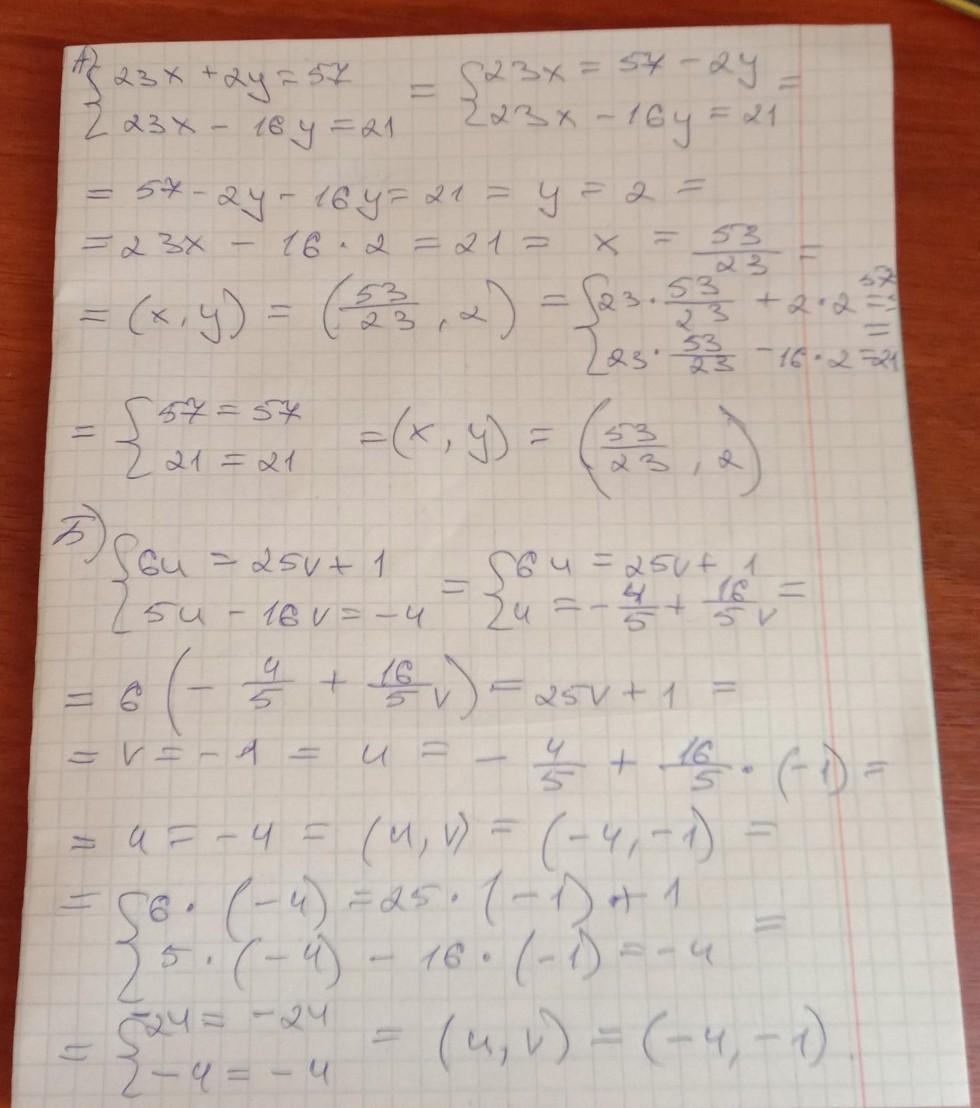 А) { 23x + 2y = 57 = { 23x = 57 - 2y =
{ 23x - 16y = 21 { 23x - 16y = 21
= 57 - 2y - 16y = 21 = y = 2 =
= 23x - 16 · 2 = 21 = x = 53/23 =
= (x, y) = (53/23, 2) = { 23 · 53/23 + 2 · 2 = 57 =
{ 23 · 53/23 - 16 · 2 = 21
= { 57 = 57 = (x, y) = (53/23, 2)
{ 21 = 21
Б) { 6u = 25v + 1 = { 6u = 25v + 1 =
{ 5u - 16v = -4 { u = -4/5 + 16/5 v
= 6 (-4/5 + 16/5 v) = 25v + 1 =
= v = -1 = u = -4/5 + 16/5 · (-1) =
= u = -4 = (u, v) = (-4, -1) =
= { 6 · (-4) = 25 · (-1) + 1 =
{ 5 · (-4) - 16 · (-1) = -4
= { -24 = -24 = (u, v) = (-4, -1)
{ -4 = -4